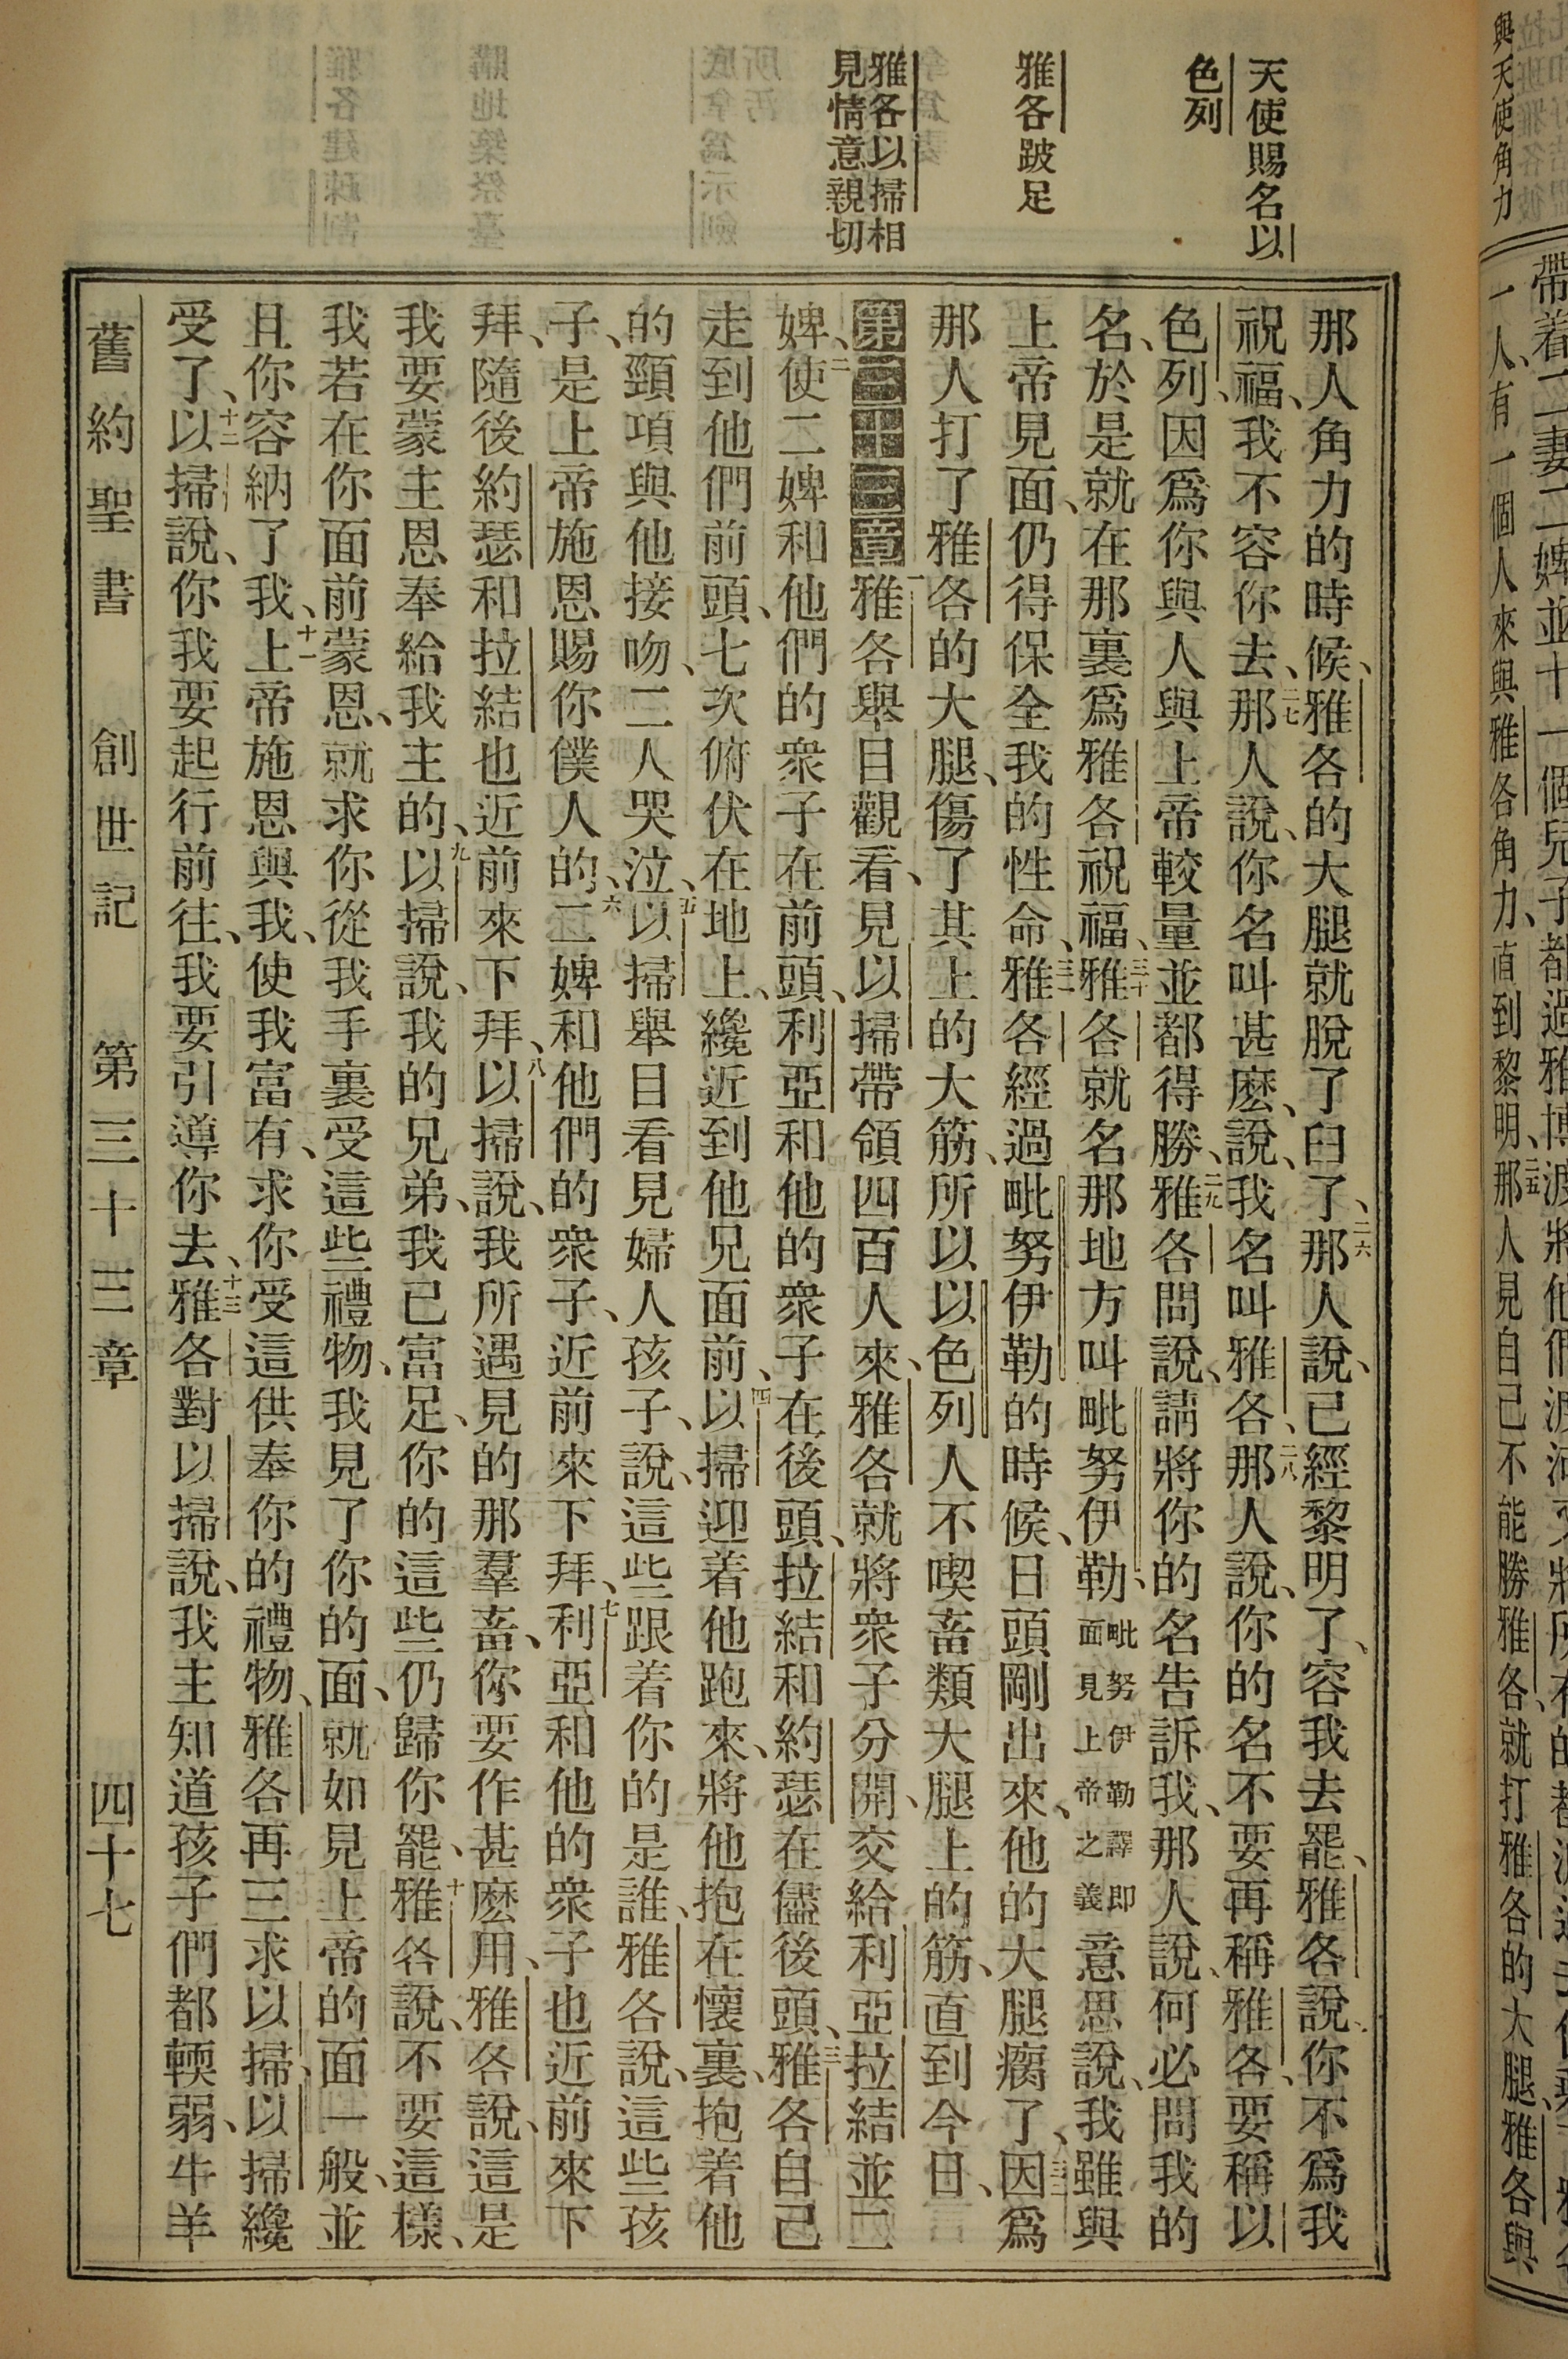 天使賜名以
色列
雅各跛足
雅各以掃相
見情意親切
那人角力的時候、雅各的大腿就脫了臼了、二六那人說、已經黎明了、容我去罷、雅各說、你不爲我
祝福、我不容你去、二七那人說、你名叫甚麽、說、我名叫雅各、二八那人說、你的名不要再稱雅各、要稱以
色列、因爲你與人與上帝較量並都得勝、二九雅各問說、請將你的名告訴我、那人說、何必問我的
名、於是就在那裏爲雅各祝福、三十雅各就名那地方叫毗努伊勒、毗努伊勒譯即面見上帝之義意思說、我雖與
上帝見面、仍得保全我的性命、三一雅各經過毗努伊勒的時候、日頭剛出來、他的大腿瘸了、三二因爲
那人打了雅各的大腿、傷了其上的大筋、所以以色列人不喫畜類大腿上的筋、直到今日、
第三十三章一雅各舉目觀看、見以掃帶領四百人來、雅各就將衆子分開、交給利亞拉結並二
婢、二使二婢和他們的衆子在前頭、利亞和他的衆子在後頭、拉結和約瑟在儘後頭、三雅各自己
走到他們前頭、七次俯伏在地上、纔近到他兄面前、四以掃迎着他跑來、將他抱在懷裏、抱着他
的頸項與他接吻、二人哭泣、五以掃舉目看見婦人孩子、說、這些跟着你的是誰、雅各說、這些孩
子、是上帝施恩賜你僕人的、六二婢和他們的衆子、近前來下拜、七利亞和他的衆子也近前來下
拜、隨後約瑟和拉結也近前來下拜、八以掃說、我所遇見的那羣畜、你要作甚麽用、雅各說、這是
我要蒙主恩奉給我主的、九以掃說、我的兄弟、我已富足、你的這些仍歸你罷、十雅各說、不要這樣、
我若在你面前蒙恩、就求你從我手裏受這些禮物、我見了你的面、就如見上帝的面一般、並
且你容納了我、十一上帝施恩與我、使我富有、求你受這供奉你的禮物、雅各再三求以掃、以掃纔
受了、十二以掃說、你我要起行前往、我要引導你去、十三雅各對以掃說、我主知道孩子們都輭弱、牛羊
舊約聖書 創世記 第三十三章 四十七